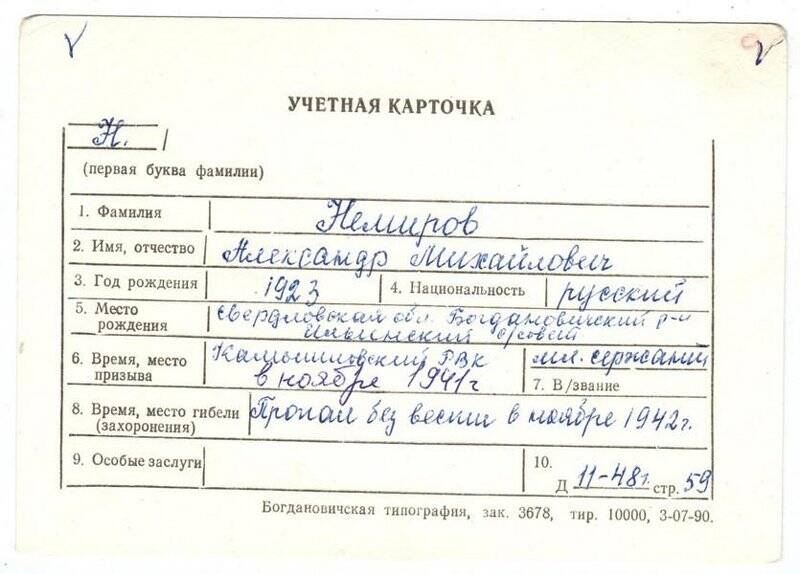 УЧЕТНАЯ КАРТОЧКА
Н.
(первая буква фамилии)
1. Фамилия Немиров
2. Имя, отчество Александр Михайлович
3. Год рождения 1923 4. Национальность русский
5. Место рождения Свердловская обл. Богдановичский р-н
Ильинский с/совет
6. Время, место призыва Камышловский РВК
в ноябре 1941г
мл. сержант
7. В/звание
8. Время, место гибели (захоронения) Пропал без вести в ноябре 1942г.
9. Особые заслуги
10.
Д 11-48г. стр. 59
Богдановичская типография, зак. 3678, тир. 10000, 3-07-90.